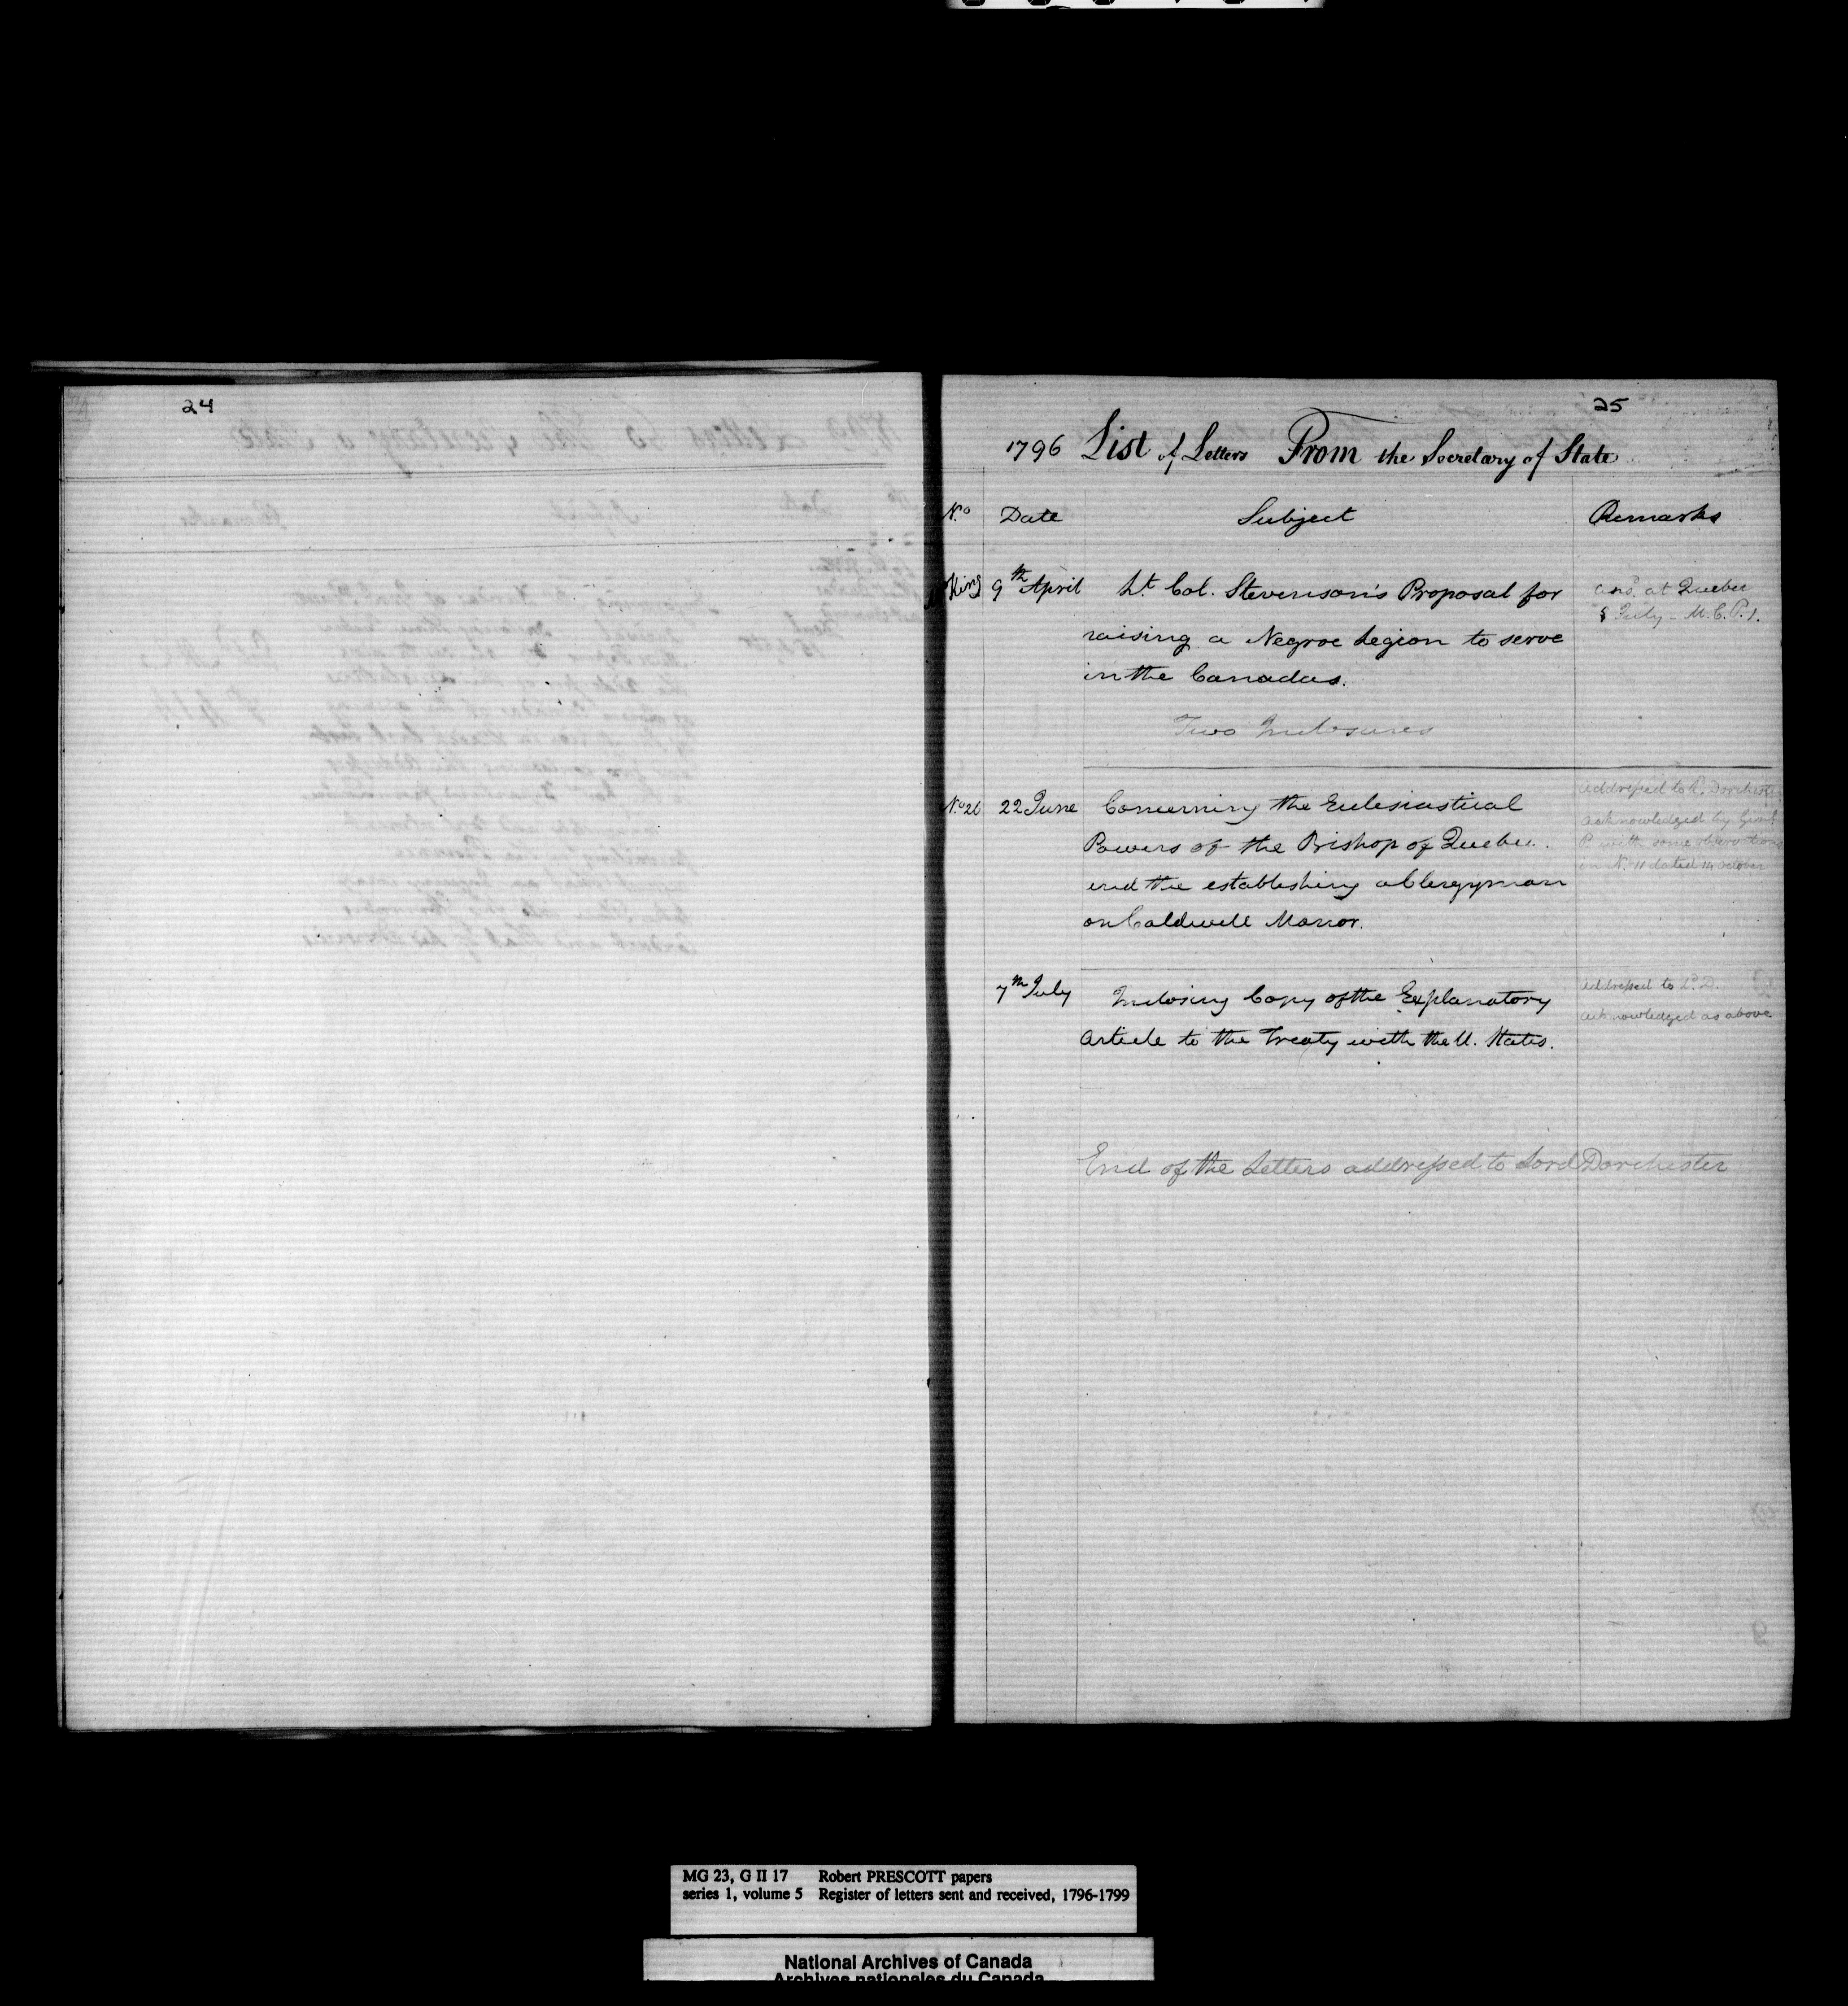 24
25
1796 List of Letters From the Secretary of State
No. Date Subject Remarks
King 9th April Lt. Col. Stevenson's Proposal for
raising a Negroe Legion to serve
in the Canadas.
Two Inclosures
ansd. at Quebec
July - M.C.P.
No. 26 22 June Concerning the Eclesiastical
Powers of the Bishop of Quebec.
and the establishing a Clergyman
on Caldwell Manor.
addressed to Ld. Dorchester
acknowledged by Genl.
P. with some observations
in No. 11 dated 14 October
7th July Inclosing Copy of the Explanatory
Article to the Treaty with the U. States.
addressed to Ld. D.
acknowledged as above
End of the Letters addressed to Lord Dorchester
MG 23, G II 17 Robert PRESCOTT papers
series 1, volume 5 Register of letters sent and received, 1796-1799
National Archives of Canada
Archives nationales du Canada